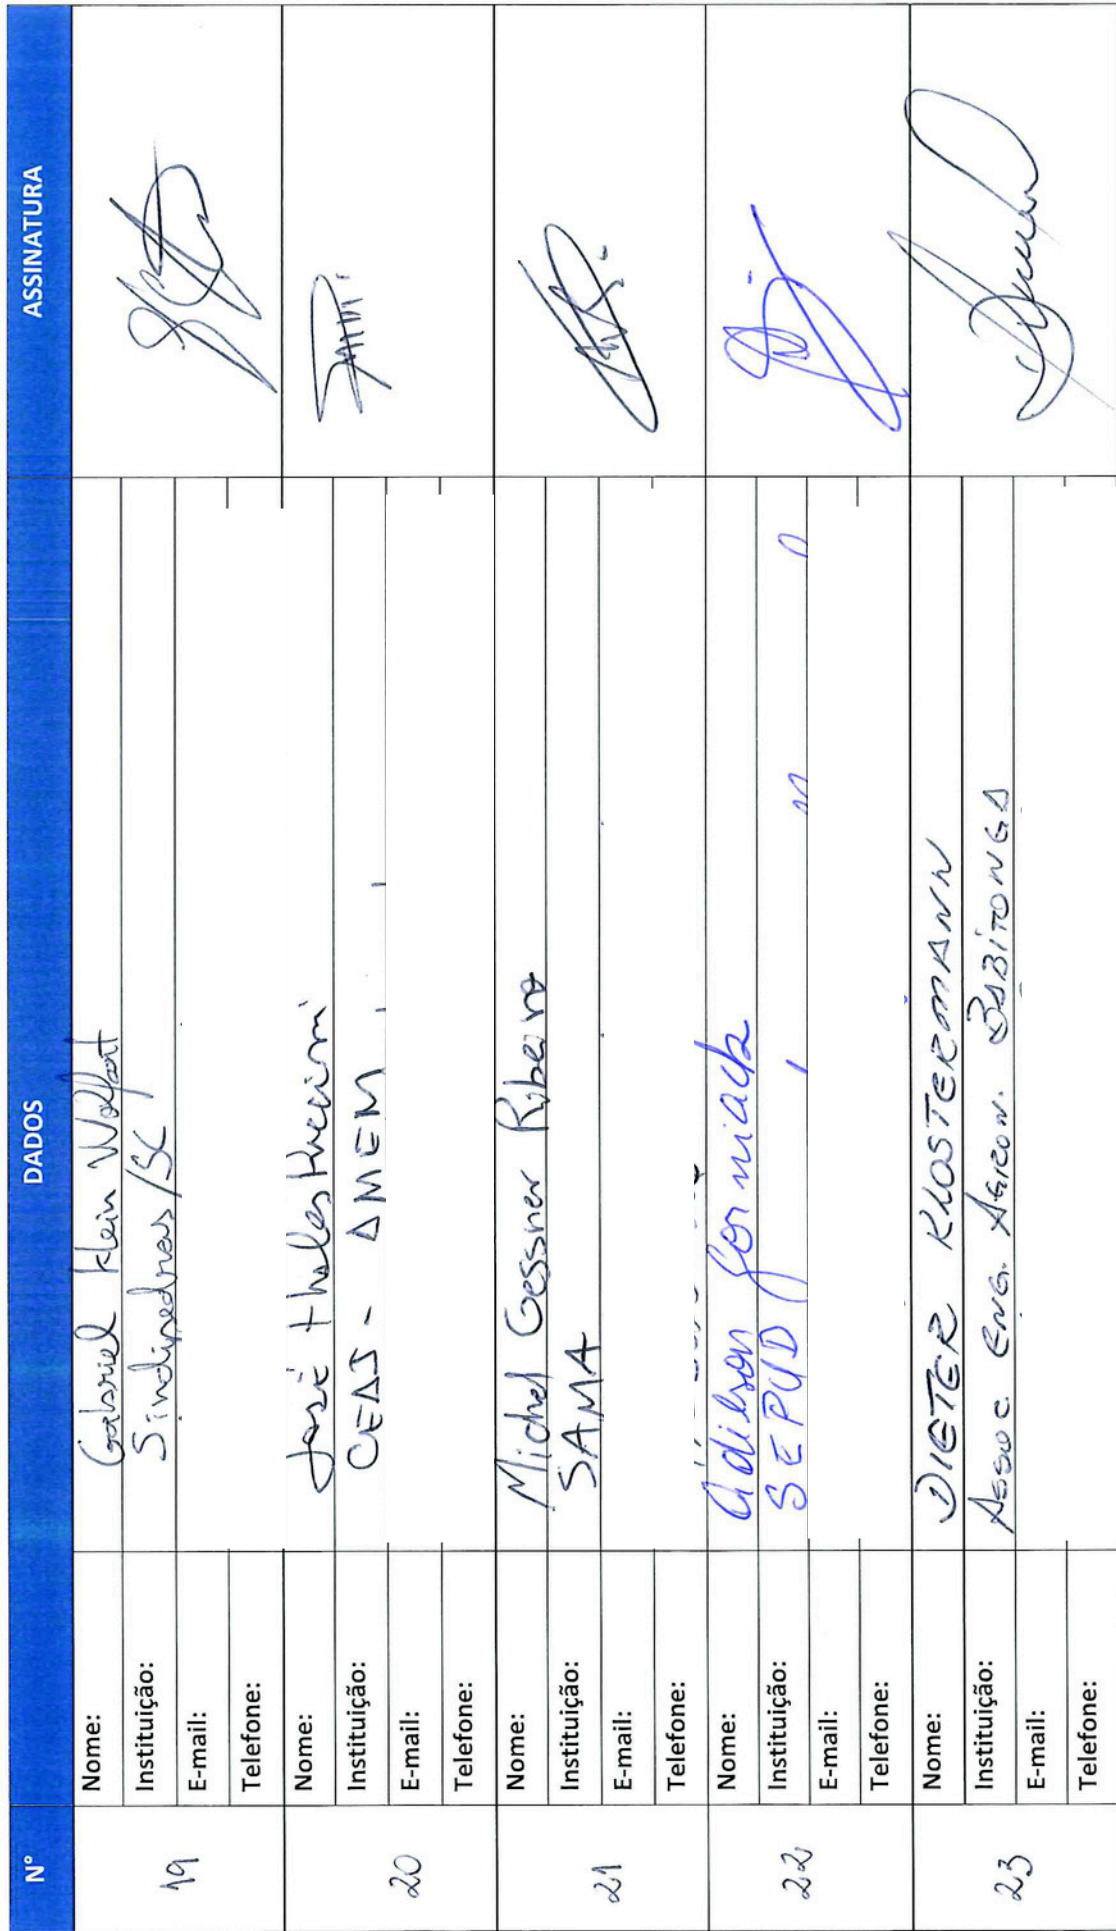 Nº DADOS ASSINATURA
19
Nome: Gabriel Klein Wolfart
Instituição: Sindipedras/SC
E-mail:
Telefone:
20
Nome: José Thales
Instituição: CEAJ - AMEM
E-mail:
Telefone:
21
Nome: Michel Gessner Ribeiro
Instituição: SAMA
E-mail:
Telefone:
22
Nome: Adilson Gorniack
Instituição: SEPUD
E-mail:
Telefone:
23
Nome: DIETER KLOSTERMANN
Instituição: Assoc. Eng. Agron. BABITONGA
E-mail:
Telefone: